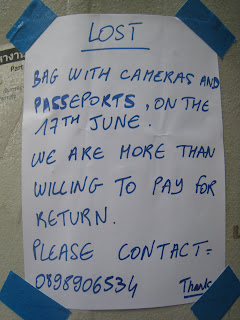 LOST
BAG WITH CAMERAS AND
PASSEPORTS, ON THE
17TH JUNE.
WE ARE MORE THAN
WILLING TO PAY FOR
RETURN.
PLEASE CONTACT:
0898906534
Thank